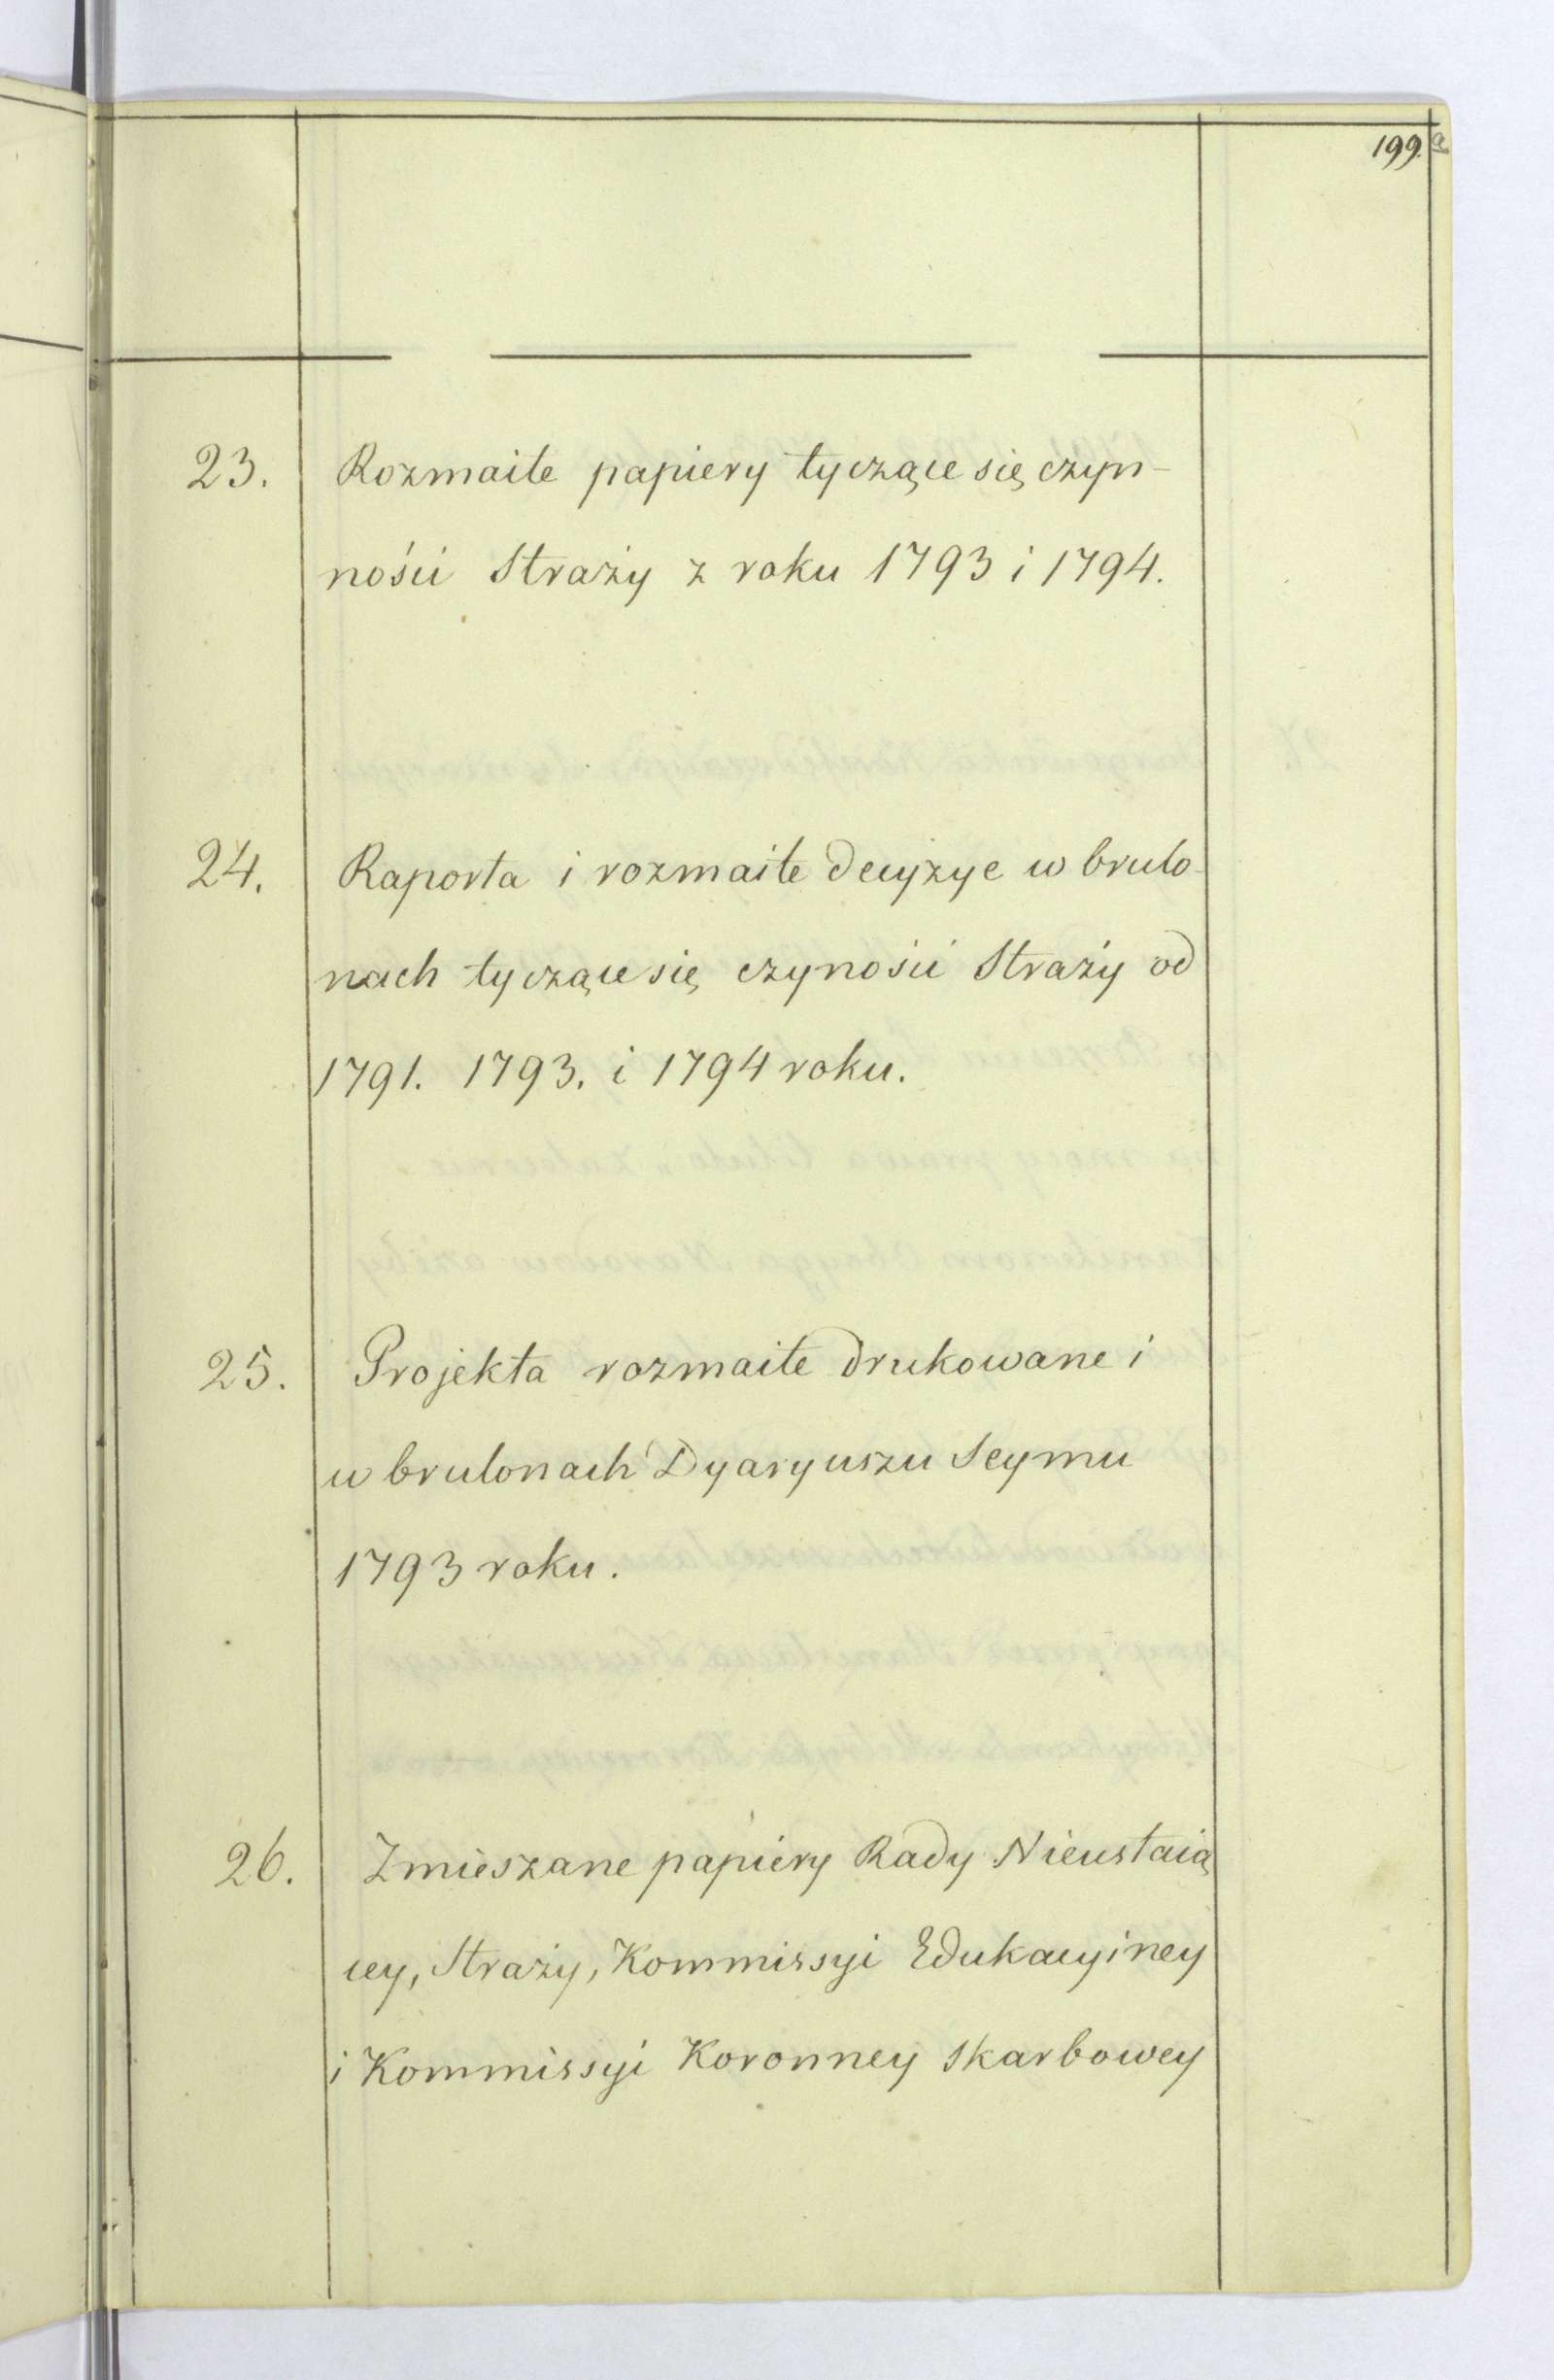 199.a
23. Rozmaite papiery tyczące się czyn-
ności Straży z roku 1793 i 1794.
24. Raporta i rozmaite decyzye w brulo-
nach tyczące się czyności Straży od
1791. 1793. i 1794 roku.
25. Projekta rozmaite drukowane i
w brulonach Dyaryuszu Seymu
1793 roku.
26. Zmieszane papiéry Rady Nieustaią
cey, Straży, Kommissyi Edukacyiney
i Kommissyi Koronney Skarbowey